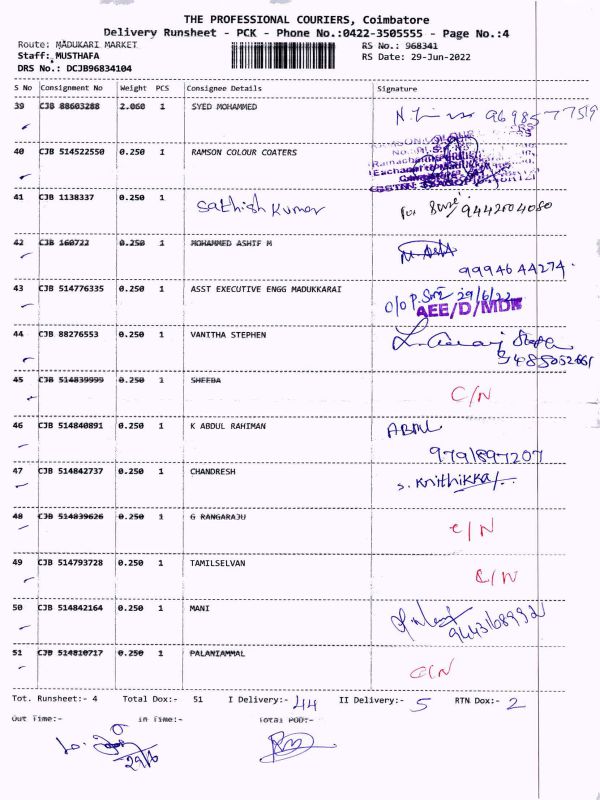 THE PROFESSIONAL COURIERS, Coimbatore
Delivery Runsheet - PCK - Phone No.:0422-3505555 - Page No.:4
Route: MADUKARI MARKET RS No.: 968341
Staff: MUSTHAFA RS Date: 29-Jun-2022
DRS No.: DCJB96834104
S No Consignment No Weight PCS Consignee Details Signature
39 CJB 88603288 2.060 1 SYED MOHAMMED 9698577519
40 CJB 514522550 0.250 1 RAMSON COLOUR COATERS
41 CJB 1138337 0.250 1 Sathish Kumar 9442704080
42 CJB 160722 0.250 1 MOHAMMED ASHIF M
9994644274.
43 CJB 514776335 0.250 1 ASST EXECUTIVE ENGG MADUKKARAI 29/6/22
AEE/D/MDK
44 CJB 88276553 0.250 1 VANITHA STEPHEN
45 CJB 514839999 0.250 1 SHEEBA C/N
46 CJB 514840891 0.250 1 K ABDUL RAHIMAN
9791897207
47 CJB 514842737 0.250 1 CHANDRESH
48 CJB 514839626 0.250 1 G RANGARAJU C/N
49 CJB 514793728 0.250 1 TAMILSELVAN C/N
50 CJB 514842164 0.250 1 MANI
51 CJB 514810717 0.250 1 PALANIAMMAL C/N
Tot. Runsheet:- 4 Total Dox:- 51 I Delivery:- 44 II Delivery:- 5 RTN Dox:- 2
Out Time:- In Time:- Total POD:-
29/6